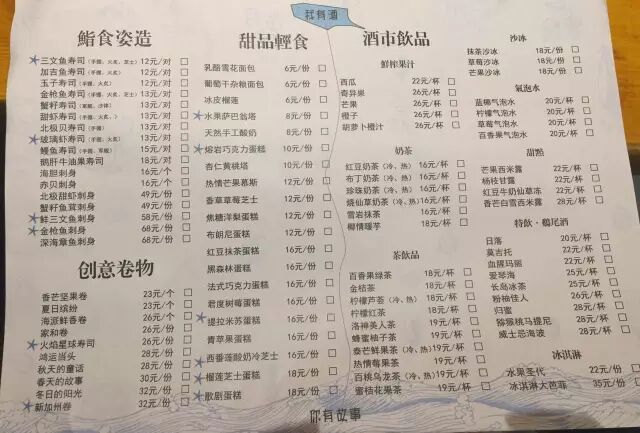 我有酒
鮨食姿造
★三文鱼寿司(手握、火炙、芝士) 12元/对 □
加吉鱼寿司(手握、火炙) 12元/对 □
玉子寿司(手握、火炙) 12元/对 □
金枪鱼寿司(手握、火炙、芝士) 13元/对 □
蟹籽寿司(军舰、沙律) 13元/对 □
甜虾寿司(手握、火炙) 13元/对 □
北极贝寿司(手握) 13元/对 □
★玻璃虾寿司(手握、火炙) 13元/对 □
鳗鱼寿司(手握、军舰) 15元/对 □
鹅肝牛油果寿司 18元/对 □
海胆刺身 16元/个 □
赤贝刺身 16元/个 □
北极甜虾刺身 49元/份 □
蟹籽鱼茸刺身 49元/份 □
★鲜三文鱼刺身 58元/份 □
★金枪鱼刺身 68元/份 □
深海章鱼刺身 68元/份 □
创意卷物
香芒坚果卷 23元/个 □
夏日缤纷 23元/个 □
海派鲜香卷 26元/个 □
家和卷 26元/份 □
★火焰星球寿司 26元/份 □
鸿运当头 28元/份 □
秋天的童话 28元/份 □
春天的故事 30元/份 □
冬日的阳光 32元/份 □
★新加州卷 32元/份 □
甜品輕食
乳酪雪花面包 6元/份 □
葡萄干杂粮面包 6元/份 □
冰皮榴莲 6元/份 □
★水果萨巴翁塔 8元/份 □
天然手工酸奶 8元/份 □
★熔岩巧克力蛋糕 10元/份 □
杏仁黄桃塔 10元/份 □
热情芒果慕斯 12元/份 □
香草草莓芝士 12元/份 □
焦糖洋梨蛋糕 12元/份 □
布朗尼蛋糕 12元/份 □
红豆抹茶蛋糕 16元/份 □
黑森林蛋糕 16元/份 □
法式巧克力蛋糕 16元/份 □
君度树莓蛋糕 16元/份 □
★提拉米苏蛋糕 16元/份 □
青苹果蛋糕 16元/份 □
★西番莲酸奶冷芝士 16元/份 □
★榴莲芝士蛋糕 18元/份 □
★歌剧蛋糕 18元/份 □
酒市飲品
鮮榨果汁
西瓜 22元/杯 □
奇异果 26元/杯 □
芒果 26元/杯 □
橙子 26元/杯 □
胡萝卜橙汁 26元/杯 □
奶茶
红豆奶茶(冷、热) 16元/杯 □
布丁奶茶(冷、热) 16元/杯 □
珍珠奶茶(冷、热) 16元/杯 □
烧仙草奶茶(冷、热) 16元/杯 □
雪岩抹茶 16元/杯 □
椰情暖芋 18元/杯 □
茶飲品
百香果绿茶 18元/杯 □
金桔茶 18元/杯 □
柠檬芦荟(冷、热) 18元/杯 □
柠檬红茶 18元/杯 □
洛神美人茶 19元/杯 □
蜂蜜柚子茶 19元/杯 □
泰芒鲜果茶(冷、热) 19元/杯 □
热情莓果茶 19元/杯 □
百桃乌龙茶(冷、热) 19元/杯 □
蜜桔花果茶 19元/杯 □
沙冰
抹茶沙冰 18元/份 □
草莓沙冰 18元/份 □
芒果沙冰 18元/份 □
氣泡水
蓝椰气泡水 20元/杯 □
柠檬气泡水 20元/杯 □
草莓气泡水 20元/杯 □
百香果气泡水 20元/杯 □
甜點
芒果西米露 22元/杯 □
杨枝甘露 22元/杯 □
红豆牛奶仙草冻 22元/杯 □
香芒白雪西米露 22元/杯 □
特飲·鷄尾酒
日落 20元/杯 □
莫吉托 22元/杯 □
血腥玛丽 22元/杯 □
爱琴海 25元/杯 □
长岛冰茶 25元/杯 □
粉柚佳人 25元/杯 □
归蜜 28元/杯 □
猕猴桃马提尼 28元/杯 □
威士忌海波 28元/杯 □
冰淇淋
水果圣代 22元/份 □
冰淇淋大芭菲 35元/份 □
你有故事